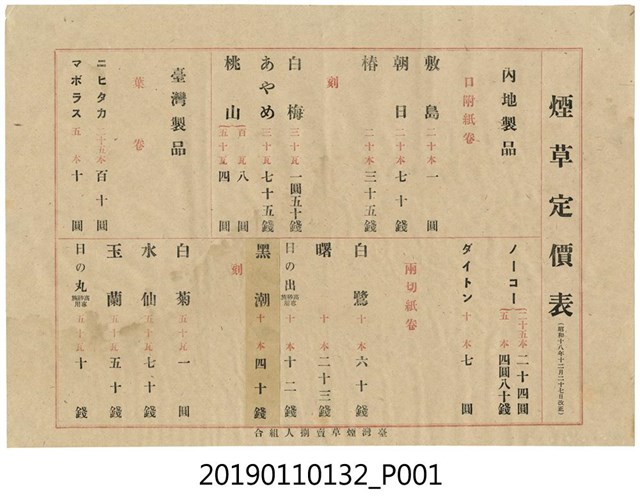 煙草定價表
(昭和十八年十二月二十七日改正)
內地製品
口附紙卷
敷島 二十本 一圓
朝日 二十本 七十錢
椿 二十本 三十五錢
刻
白梅 三十瓦 一圓五十錢
あやめ 三十瓦 七十五錢
桃山 百瓦 八圓
五十瓦 四圓
臺灣製品
葉卷
ニヒタカ 二十五本 百十圓
マボラス 五本 十圓
ノーコー 二十五本 二十四圓
五本 四圓八十錢
ダイトン 十本 七圓
兩切紙卷
白鷺 十本 六十錢
曙 十本 二十三錢
日の出 十本 十二錢
黑潮 十本 四十錢
刻
白菊 五十瓦 一圓
水仙 五十瓦 七十錢
玉蘭 五十瓦 五十錢
日の丸 五十瓦 十錢
臺灣煙草賣捌人組合
20190110132_P001